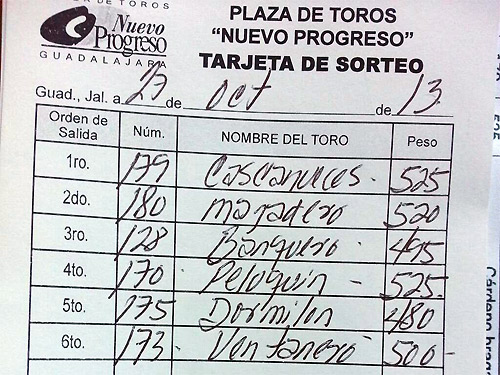 DE TOROS
Nuevo
Progreso
GUADALAJARA
PLAZA DE TOROS
“NUEVO PROGRESO”
TARJETA DE SORTEO
Guad., Jal. a 27 de oct de 13.
Orden de Salida Núm. NOMBRE DEL TORO Peso
1ro. 179 Cascanueces. 525
2do. 180 majadero 520
3ro. 128 Banquero. 495
4to. 170. Peluquin - 525.
5to. 175 Dormilon 480
6to. 173. Ventanero 500-